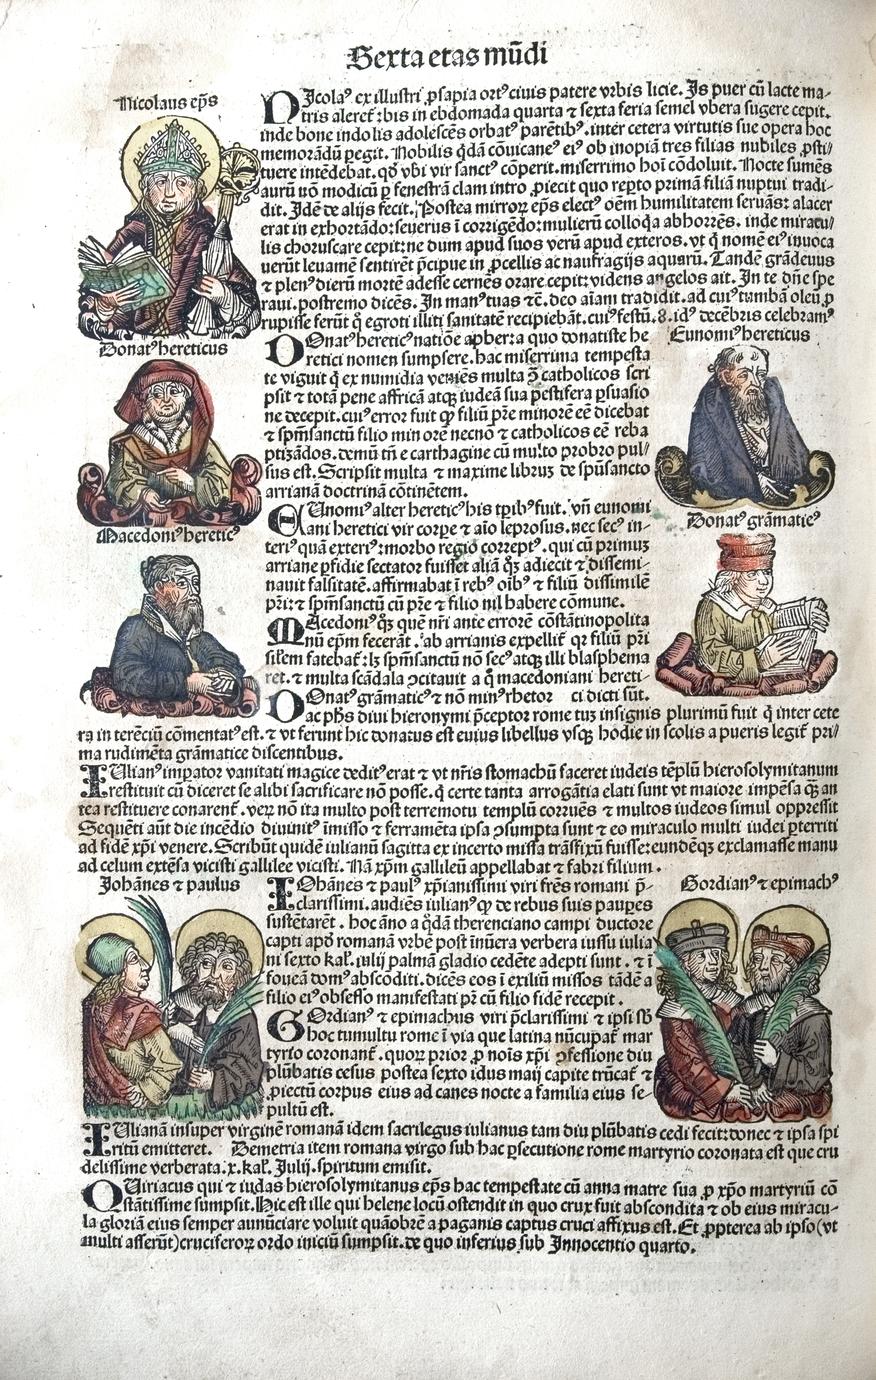 Sexta etas mūdi
Nicolaus ep̄s
NIcolaꝰ ex illustri ꝓsapia ortꝰ ciuis patere vrbis licie. Is puer cū lacte ma-
tris aleret᷑: bis in ebdomada quarta ⁊ sexta feria semel vbera sugere cepit.
inde bone indolis adolescēs orbatꝰ parētibꝰ. inter cetera virtutis sue opera hoc
memorādū ꝑegit. Nobilis q̇dā cōuicaneꝰ eiꝰ ob inopiā tres filias nubiles ꝓsti/
tuere intēdebat. qḋ vbi vir sanctꝰ cōperit. miserrimo hoi condoluit. Nocte sumēs
aurū nō modicū ꝑ fenestrā clam intro ꝓiecit quo reꝑto primā filiā nuptui tradi-
dit. Idē de alijs fecit. Postea mirroꝝ ep̄s electꝰ oēm humilitatem seruās: alacer
erat in exhortādo: seuerus ī corrigēdo: mulierū colloq̇a abhorrēs. inde miracu/
lis choruscare cepit: ne dum apud suos verū apud exteros. vt q̇ nomē eiꝰ inuoca
uerūt leuamē sentirēt p̄cipue in ꝓcellis ac naufragijs aquarū. Tandē grādeuus
⁊ plenꝰ dierū mortē adesse cernēs orare cepit: videns angelos ait. In te dn̄e spe
raui. postremo dicēs. In manꝰ tuas ⁊c̄. deo aīam tradidit. ad cuiꝰ tumbā oleū ꝓ
rupisse ferūt q̇ egroti illiti sanitatē recipiebāt. cuiꝰ festū. 8. idꝰ decēbris celebramꝰ
Donatꝰ hereticus
DOnatꝰ hereticꝰ natiōe apher: a quo donatiste he
retici nomen sumpsere. hac miserrima tempesta
te viguit q̇ ex numidia veniēs multa ꝯ̄ catholicos scri
psit ⁊ totā pene affricā atqꝫ iudeā sua pestifera ꝑsuasio
ne decepit. cuiꝰ error fuit qꝙ filiū pr̄e minorē eē dicebat
⁊ sp̄msanctū filio minore necnō ⁊ catholicos eē reba
ptizādos. demū tn̄ e carthagine cū multo probro pul/
sus est. Scripsit multa ⁊ maxime libruꝫ de sp̄usancto
arrianā doctrinā cōtinētem.
Eunomiꝰ hereticus
EUnomiꝰ alter hereticꝰ his tp̄ibꝰ fuit. vn̄ eunomi
ani heretici vir corꝑe ⁊ aīo leprosus. nec secꝰ in-
teriꝰ quā exteriꝰ: morbo regio correptꝰ. qui cū primuꝫ
arriane ꝑfidie sectator fuisset aliā q̇ꝫ adiecit ⁊ dissemi-
nauit falsitatē. affirmabat ī rebꝰ oībꝰ ⁊ filiū dissimilē
pr̄i: ⁊ sp̄msanctū cū pr̄e ⁊ filio nil habere cōmune.
Macedoniꝰ hereticꝰ
MAcedoniꝰ q̇ꝫ quē nr̄i ante errorē cōstātinopolita
nū ep̄m fecerāt. ab arrianis expellit᷑ qꝛ filiū pr̄i
sil̄em fatebat᷑: lꝫ sp̄msanctū nō secꝰ atqꝫ illi blasphema
ret. ⁊ multa scādala ꝯcitauit a q̇ macedoniani hereti-
ci dicti sūt.
Donatꝰ grāmaticꝰ
DOnatꝰ grāmaticꝰ ⁊ nō minꝰ rhetor
ac ph̄s diui hieronymi p̄ceptor rome tuꝫ insignis plurimū fuit q̇ inter cete
ra in terēciū cōmentatꝰ est. ⁊ vt ferunt hic donatus est euius libellus vsqꝫ hodie in scolis a pueris legit᷑ pri/
ma rudimēta grāmatice discentibus.
IUlianꝰ imꝑator vanitati magice deditꝰ erat ⁊ vt nr̄is stomachū faceret iudeis tēplū hierosolymitanum
restituit cū diceret se alibi sacrificare nō posse. q̇ certe tanta arrogātia elati sunt vt maiore impēsa q̇ꝫ an
tea restituere conarent᷑. veꝝ nō ita multo post terremotu templū corruēs ⁊ multos iudeos simul oppressit
Sequēti aūt die incēdio diuinitꝰ īmisso ⁊ ferramēta ipsa ꝯsumpta sunt ⁊ eo miraculo multi iudei ꝑterriti
ad fidē xp̄i venere. Scribūt quidē iulianū sagitta ex incerto missa trāsfixū fuisse: eundēqꝫ exclamasse manu
ad celum extēsa vicisti gallilee vicisti. Nā xp̄m gallileū appellabat ⁊ fabri filium.
Johānes ⁊ paulus
IOhānes ⁊ paulꝰ xp̄ianissimi viri fr̄es romani p̄-
clarissimi. audiēs iulianꝰ qꝙ de rebus suis pauꝑes
sustētarēt. hoc āno a q̇dā therenciano campi ductore
capti apḋ romanā vrbē post īnūera verbera iussu iulia
ni sexto kal̄. iulij palmā gladio cedēte adepti sunt. ⁊ ī
foueā domꝰ absconditi. dicēs eos ī exiliū missos tādē a
filio eiꝰ obsesso manifestati pr̄ cū filio fidē recepit.
Gordianꝰ ⁊ epimachꝰ
GOrdianꝰ ⁊ epimachus viri p̄clarissimi ⁊ ipsi sḃ
hoc tumultu rome ī via que latina nūcupat᷑ mar
tyrio coronant᷑. quoꝝ prior ꝓ noīs xp̄i ꝯfessione diu
plūbatis cesus postea sexto idus maij capite trūcat᷑ ⁊
ꝓiectū corpus eius ad canes nocte a familia eius se-
pultū est.
IUlianā insuper virginē romanā idem sacrilegus iulianus tam diu plūbatis cedi fecit: donec ⁊ ipsa spi
ritū emitteret. Demetria item romana virgo sub hac ꝑsecutione rome martyrio coronata est que cru
delissime verberata: x. kal̄. Julij. spiritum emisit.
QUiriacus qui ⁊ iudas hierosolymitanus ep̄s hac tempestate cū anna matre sua ꝓ xp̄o martyriū cō
stātissime sumpsit. Hic est ille qui helene locū ostendit in quo crux fuit abscondita ⁊ ob eius miracu-
la gloriā eius semper aunūciare voluit quāobrē a paganis captus cruci affixus est. Et ꝓpterea ab ipso (vt
multi asserūt) cruciferoꝝ ordo iniciū sumpsit. de quo inferius sub Innocentio quarto.